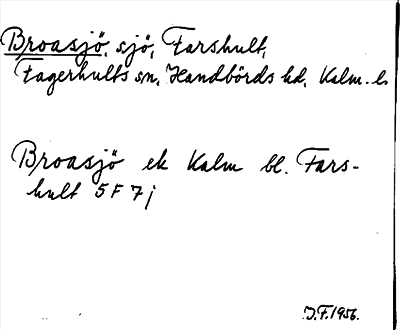 Broasjö, sjö, Farshult,
Fagerhults sn, Handbörds hd, Kalm. l.
Broasjö ek Kalm bl. Fars-
hult 5 F 7 j
J.F. 1956.